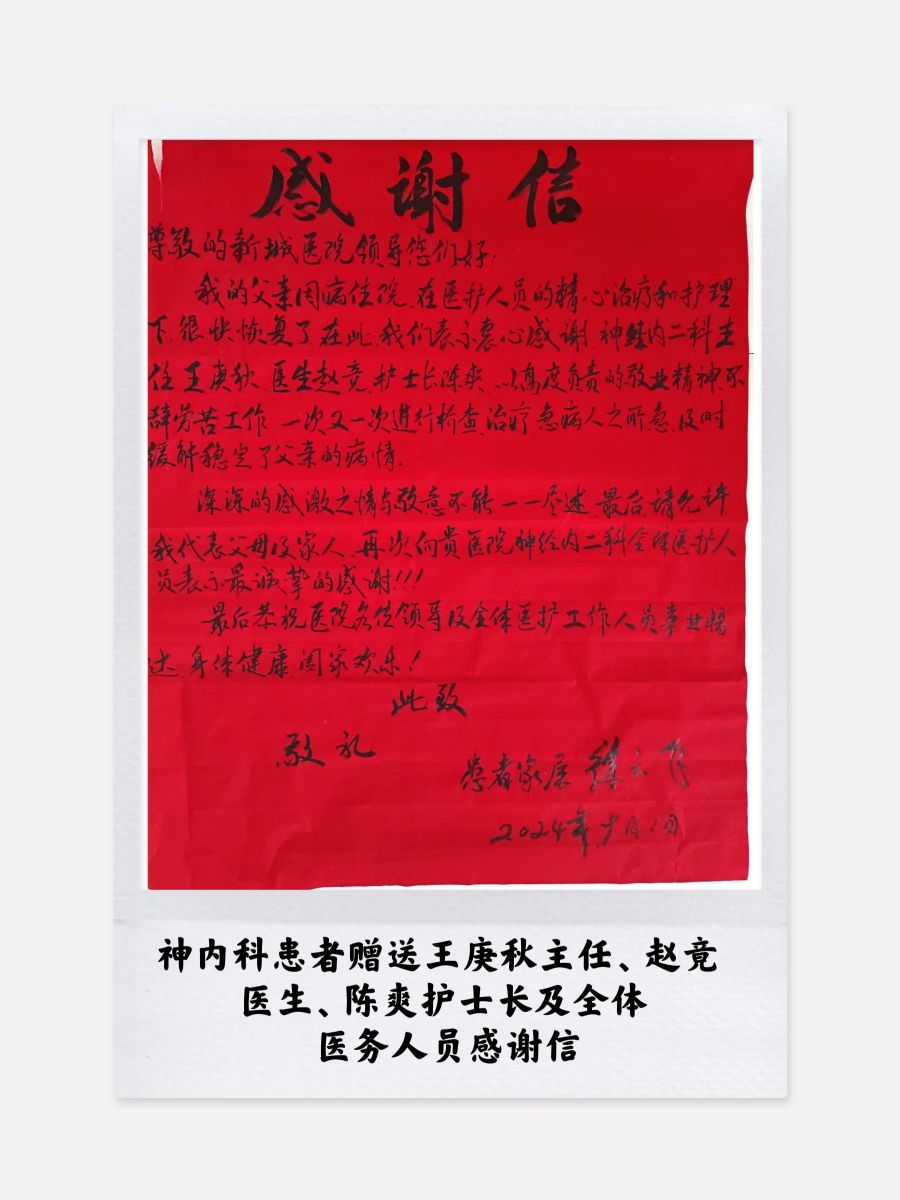 感谢信
尊敬的新城医院领导您们好:
我的父亲因病住院,在医护人员的精心治疗和护理
下,很快恢复了,在此,我们表示衷心感谢,神经内二科主
任王庚秋,医生赵竞,护士长陈爽,以高度负责的敬业精神,不
辞劳苦工作,一次又一次进行检查,治疗,急病人之所急,及时
缓解稳定了父亲的病情,
深深的感激之情与敬意不能一一尽述,最后请允许
我代表父母及家人,再次向贵医院神经内二科全体医护人
员表示最诚挚的感谢!!!
最后恭祝医院各位领导及全体医护工作人员事业畅
达,身体健康,阖家欢乐!
此致
敬礼
患者家属
2024年9月1日
神内科患者赠送王庚秋主任、赵竟
医生、陈爽护士长及全体
医务人员感谢信